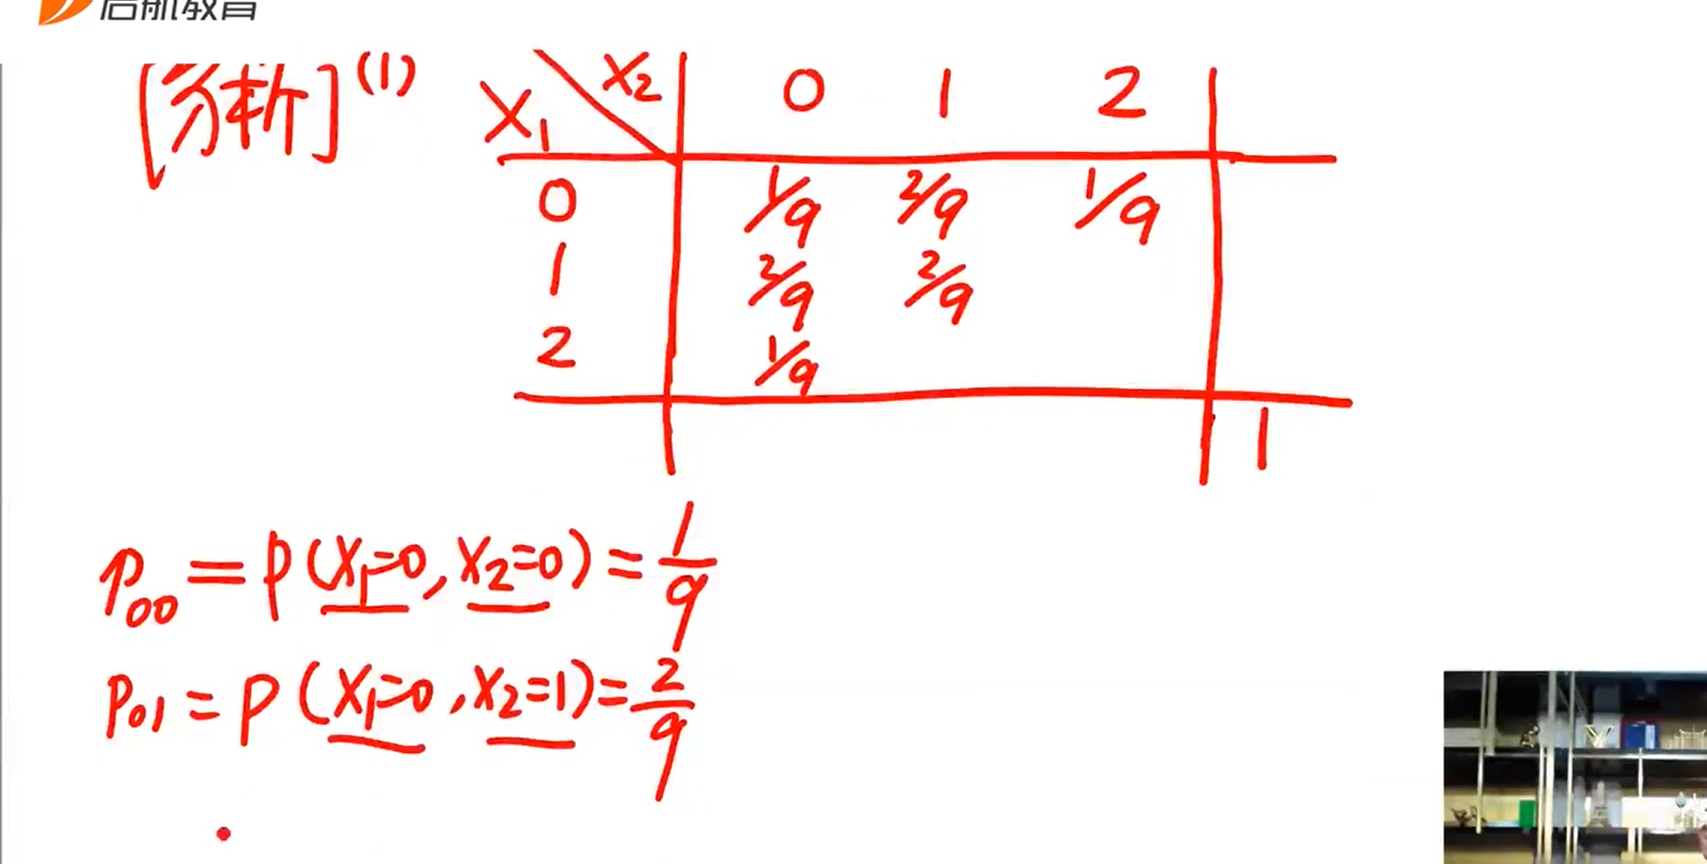 启航教育
[分析](1)
X₁ X₂ 0 1 2
0 1/9 2/9 1/9
1 2/9 2/9
2 1/9
1
P₀₀ = P(X₁=0, X₂=0) = 1/9
P₀₁ = P(X₁=0, X₂=1) = 2/9